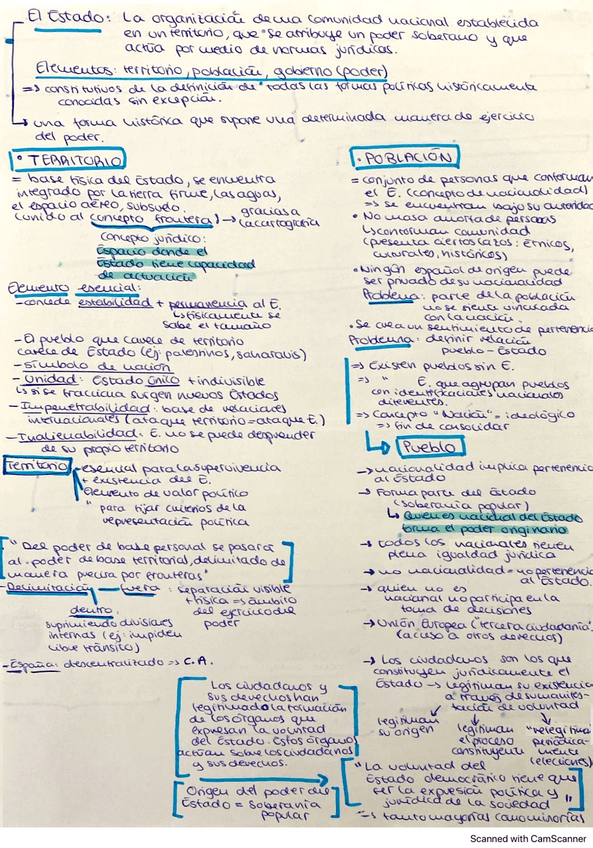 El Estado: La organización de una comunidad nacional establecida
en un territorio, que "se atribuye un poder soberano y que
actúa por medio de normas jurídicas.
Elementos: territorio, población, gobierno (poder)
=> constitutivos de la definición de "todas las formas políticas históricamente
conocidas sin excepción.
→ una forma histórica que supone una determinada manera de ejercicio
del poder.
• TERRITORIO
= base física del Estado, se encuentra
integrado por la tierra firme, las aguas,
el espacio aéreo, subsuelo
(unido al concepto frontera) → gracias a
la cartografía
Concepto jurídico:
Espacio donde el
Estado tiene capacidad
de actuación
Elemento esencial:
- concede estabilidad + permanencia al E.
↳ físicamente se
sabe el tamaño
- El pueblo que carece de territorio
carece de Estado (ej: palestinos, saharauis)
- Símbolo de nación
- Unidad: Estado único + indivisible
↳ si se fracciona surgen nuevos Estados
- Impenetrabilidad: base de relaciones
internacionales (ataque territorio = ataque E.)
- Inalienabilidad: E. no se puede desprender
de su propio territorio
Territorio
esencial para la supervivencia
+ existencia del E.
Elemento de valor político
" para fijar criterios de la
representación política
"Del poder de base personal se pasará
al poder de base territorial, delimitado de
manera precisa por fronteras"
- Delimitación — fuera: separación visible
+ física => ámbito
del ejercicio de
poder
dentro:
suprimiendo divisiones
internas (ej: impiden
libre tránsito)
- España: descentralizado => C.A.
• POBLACIÓN
= conjunto de personas que conforman
el E. (concepto de nacionalidad)
=> se encuentran bajo su autoridad
• No masa amorfa de personas
↳ conforman comunidad
(presenta ciertos lazos: étnicos,
culturales, históricos)
• Ningún español de origen puede
ser privado de su nacionalidad
Problema: parte de la población
no se siente vinculada
con la nación.
• Se crea un sentimiento de pertenencia
Problema: definir relación
pueblo - Estado
=> Existen pueblos sin E.
=> " E. que agrupan pueblos
con identidades nacionales
diferentes.
=> Concepto "Nación" = ideológico
=> fin de consolidar
Pueblo
→ nacionalidad implica pertenencia
al Estado
→ Forma parte del Estado
(soberanía popular)
↳ Quien es nacional del Estado
forma el poder originario
→ todos los nacionales tienen
plena igualdad jurídica
→ no nacionalidad = no pertenencia
al Estado.
→ quien no es
nacional no participa en la
toma de decisiones
→ Unión Europea ("tercera ciudadanía"
(acceso a otros derechos)
→ Los ciudadanos son los que
constituyen jurídicamente el
Estado → legitiman su existencia
a través de su manifes-
tación de voluntad
legitiman
su origen
legitiman
el proceso
constituyente
"relegitima"
periódica-
mente
(elecciones)
Los ciudadanos y
sus derechos han
legitimado la formación
de los órganos que
expresan la voluntad
del Estado. Estos órganos
actúan sobre los ciudadanos
y sus derechos.
Origen del poder del
Estado = Soberanía
popular
"La voluntad del
Estado democrático tiene que
ser la expresión política y
jurídica de la sociedad"
=> tanto mayorías como minorías
Scanned with CamScanner